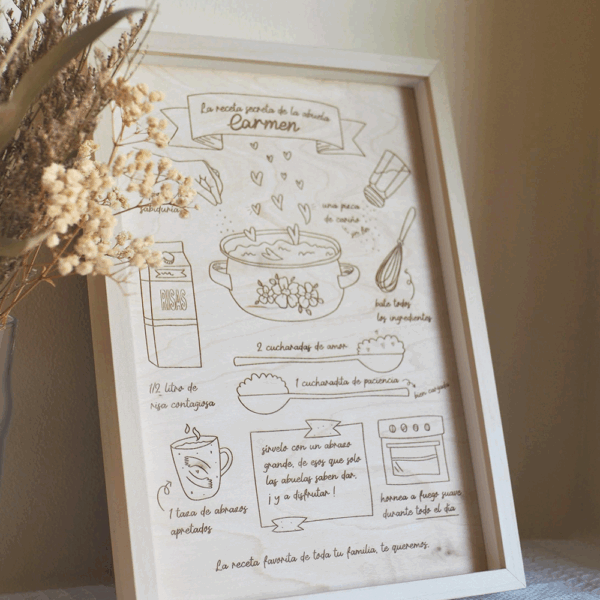 La receta secreta de la abuela
Carmen
sabiduría
una pizca
de cariño
RISAS
bate todos
los ingredientes
2 cucharadas de amor
1 cucharadita de paciencia
bien cargada
1/2 litro de
risa contagiosa
sírvelo con un abrazo
grande, de esos que solo
las abuelas saben dar.
¡y a disfrutar!
hornea a fuego suave
durante todo el día
1 taza de abrazos
apretados
La receta favorita de toda tu familia, te queremos.